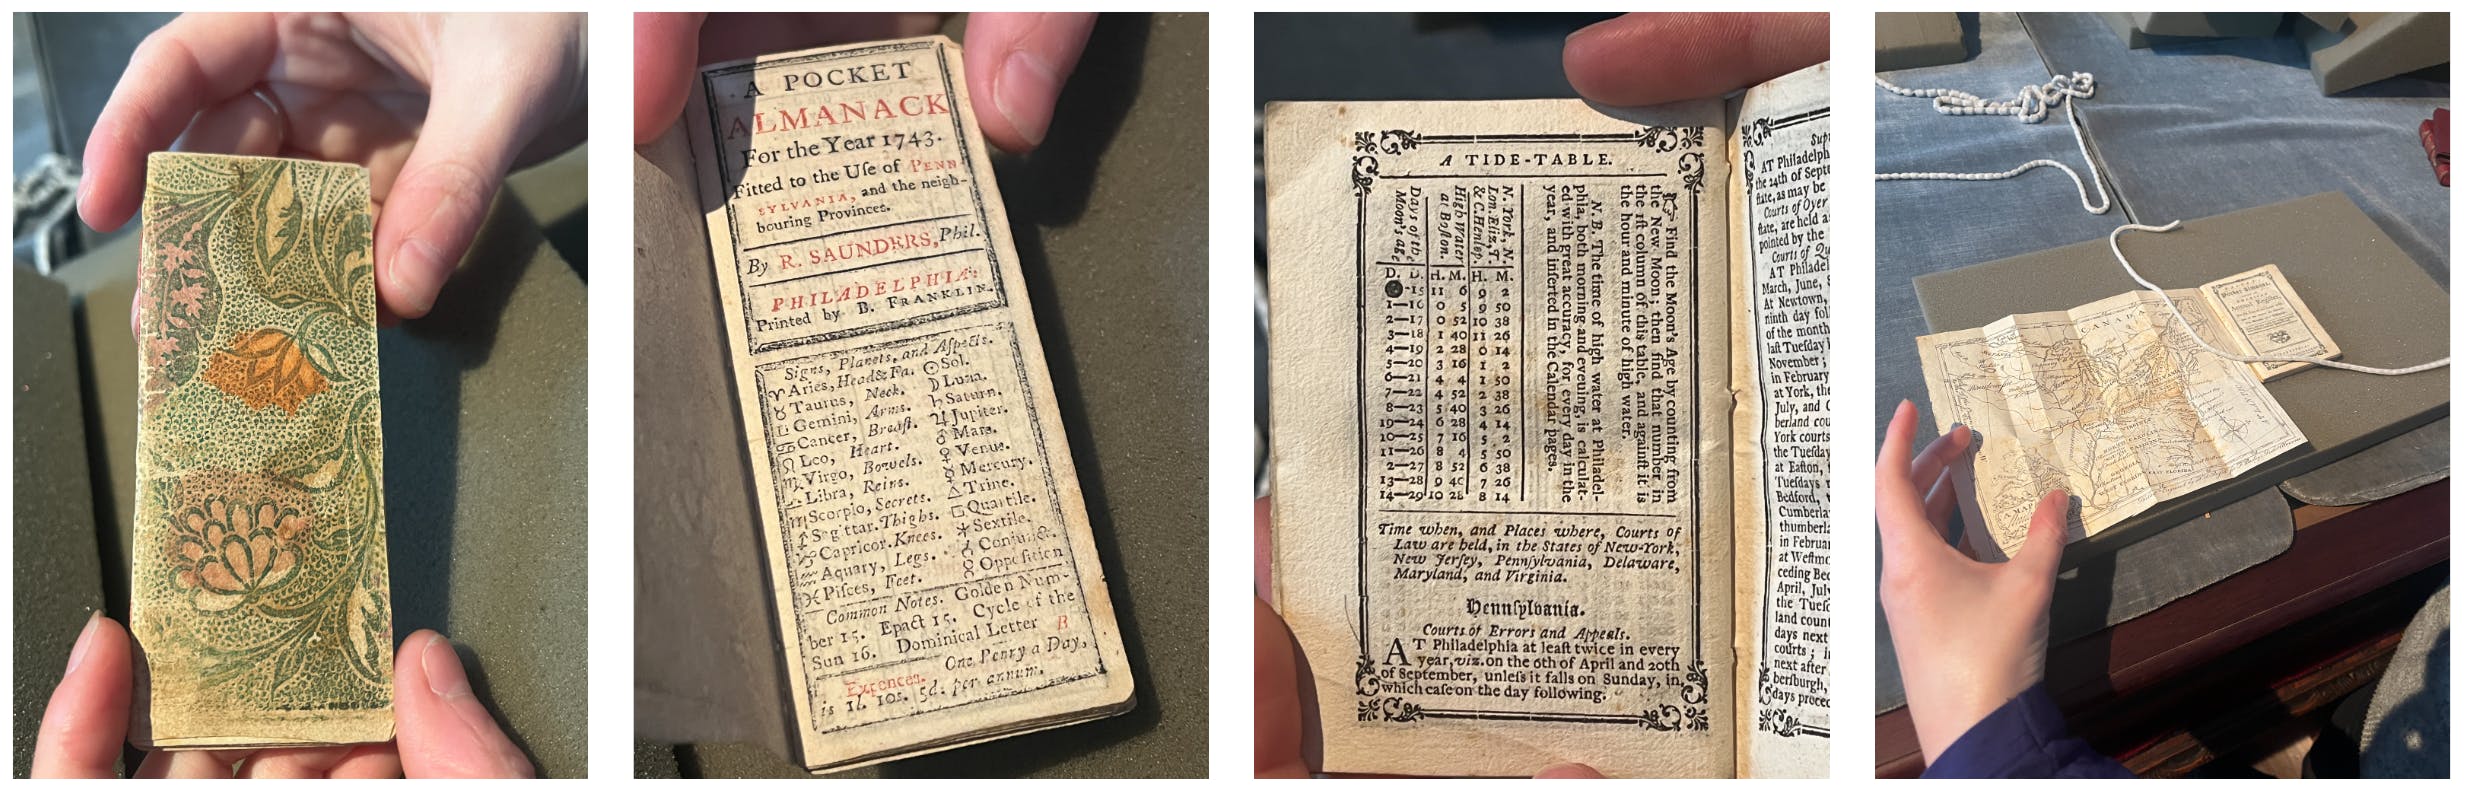 A POCKET
ALMANACK
For the Year 1743.
Fitted to the Uſe of PENN-
SYLVANIA, and the neigh-
bouring Provinces.
By R. SAUNDERS, Phil.
PHILADELPHIA:
Printed by B. FRANKLIN.
Signs, Planets, and Aſpects.
♈ Aries, Head & Fa. ☉ Sol.
♉ Taurus, Neck. ☽ Luna.
♊ Gemini, Arms. ♄ Saturn.
♋ Cancer, Breaſt. ♃ Jupiter.
♌ Leo, Heart. ♂ Mars.
♍ Virgo, Bowels. ♀ Venus.
♎ Libra, Reins. ☿ Mercury.
♏ Scorpio, Secrets. △ Trine.
♐ Sagittar. Thighs. □ Quartile.
♑ Capricor. Knees. ⚹ Sextile.
♒ Aquary, Legs. ☌ Conjunct.
♓ Piſces, Feet. ☍ Oppoſition
Common Notes. Golden Num-
ber 15. Epact 15. Cycle of the
Sun 16. Dominical Letter B
Expences. One Penny a Day,
is 1l. 10s. 5d. per annum.
A TIDE-TABLE.
☞ Find the Moon's Age by counting from
the New Moon; then find that number in
the 1ſt column of this table, and againſt it is
the hour and minute of high water.
N. B. The time of high water at Philadel-
phia, both morning and evening, is calculat-
ed with great accuracy, for every day in the
year, and inſerted in the Calendar pages.
N. York, N.
Lon. Eliz. T.
& C. Henlop.
High Water
at Boſton.
Days of the
Moon's age
D. D. H. M. H. M.
●-15 11 6 9 2
1—16 0 5 9 50
2—17 0 52 10 38
3—18 1 40 11 26
4—19 2 28 0 14
5—20 3 16 1 2
6—21 4 4 1 50
7—22 4 52 2 38
8—23 5 40 3 26
9—24 6 28 4 14
10—25 7 16 5 2
11—26 8 4 5 50
2—27 8 52 6 38
13—28 9 40 7 26
14—29 10 28 8 14
Time when, and Places where, Courts of
Law are held, in the States of New-York,
New Jerſey, Pennſylvania, Delaware,
Maryland, and Virginia.
Pennſylvania.
Courts of Errors and Appeals.
AT Philadelphia at leaſt twice in every
year, viz. on the 6th of April and 20th
of September, unleſs it falls on Sunday, in
which caſe on the day following.
Sup
AT Philadelph
the 24th of Sept
ſtate, as may be
Courts of Oyer
ſtate, are held a
pointed by the
Courts of Q
AT Philadel
March, June,
At Newtown,
ninth day fol
of the month
laſt Tueſday
November;
in February
at York, the
July, and
berland cou
York courts
the Tueſday
at Eaſton,
Tueſdays
Bedford,
Cumberla
thumberla
in Februar
at Weſtmo
ceding Bed
April, July
the Tueſ
land count
days next
courts;
next after
berſburgh,
days preced
CANADA
EAST FLORIDA
A MAP
Pocket Almanack,